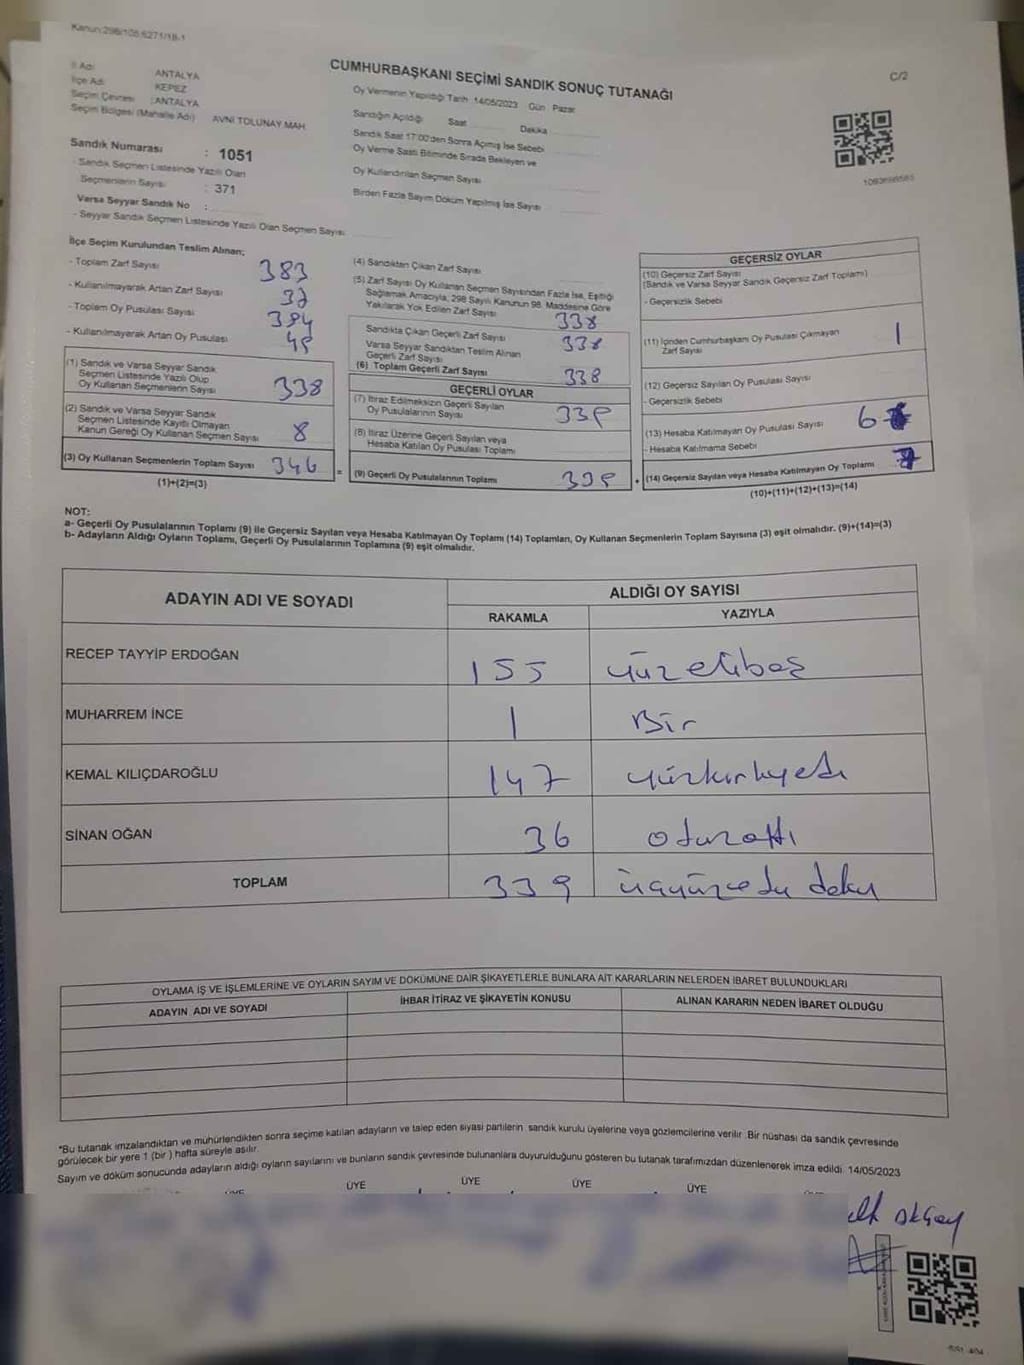 Kanun:298/108;6271/18-1
CUMHURBAŞKANI SEÇİMİ SANDIK SONUÇ TUTANAĞI
C/2
İl Adı ANTALYA
İlçe Adı KEPEZ
Seçim Çevresi :ANTALYA
Seçim Bölgesi (Mahalle Adı) AVNİ TOLUNAY MAH
Sandık Numarası : 1051
- Sandık Seçmen Listesinde Yazılı Olan
Seçmenlerin Sayısı : 371
Varsa Seyyar Sandık No :
- Seyyar Sandık Seçmen Listesinde Yazılı Olan Seçmen Sayısı
Oy Vermenin Yapıldığı Tarih 14/05/2023 Gün Pazar
Sandığın Açıldığı Saat Dakika
Sandık Saat 17:00'den Sonra Açımış İse Sebebi
Oy Verme Saati Bitiminde Sırada Bekleyen ve
Oy Kullandırılan Seçmen Sayısı
Birden Fazla Sayım Döküm Yapılmış İse Sayısı
İlçe Seçim Kurulundan Teslim Alınan;
- Toplam Zarf Sayısı 383
- Kullanılmayarak Artan Zarf Sayısı 37
- Toplam Oy Pusulası Sayısı 394
- Kullanılmayarak Artan Oy Pusulası 48
(1) Sandık ve Varsa Seyyar Sandık
Seçmen Listesinde Yazılı Olup
Oy Kullanan Seçmenlerin Sayısı 338
(2) Sandık ve Varsa Seyyar Sandık
Seçmen Listesinde Kayıtlı Olmayan
Kanun Gereği Oy Kullanan Seçmen Sayısı 8
(3) Oy Kullanan Seçmenlerin Toplam Sayısı 346
(1)+(2)=(3)
=
(4) Sandıktan Çıkan Zarf Sayısı
(5) Zarf Sayısı Oy Kullanan Seçmen Sayısından Fazla İse, Eşitliği
Sağlamak Amacıyla, 298 Sayılı Kanunun 98. Maddesine Göre
Yakılarak Yok Edilen Zarf Sayısı 338
Sandıkta Çıkan Geçerli Zarf Sayısı 338
Varsa Seyyar Sandıktan Teslim Alınan
Geçerli Zarf Sayısı
(6) Toplam Geçerli Zarf Sayısı 338
GEÇERLİ OYLAR
(7) İtiraz Edilmeksizin Geçerli Sayılan
Oy Pusulalarının Sayısı 339
(8) İtiraz Üzerine Geçerli Sayılan veya
Hesaba Katılan Oy Pusulası Toplamı
(9) Geçerli Oy Pusulalarının Toplamı 339
+
GEÇERSİZ OYLAR
(10) Geçersiz Zarf Sayısı
(Sandık ve Varsa Seyyar Sandık Geçersiz Zarf Toplamı)
- Geçersizlik Sebebi
(11) İçinden Cumhurbaşkanı Oy Pusulası Çıkmayan
Zarf Sayısı 1
(12) Geçersiz Sayılan Oy Pusulası Sayısı
- Geçersizlik Sebebi
(13) Hesaba Katılmayan Oy Pusulası Sayısı 6
- Hesaba Katılmama Sebebi
(14) Geçersiz Sayılan veya Hesaba Katılmayan Oy Toplamı 7
(10)+(11)+(12)+(13)=(14)
NOT:
a- Geçerli Oy Pusulalarının Toplamı (9) ile Geçersiz Sayılan veya Hesaba Katılmayan Oy Toplamı (14) Toplamları, Oy Kullanan Seçmenlerin Toplam Sayısına (3) eşit olmalıdır. (9)+(14)=(3)
b- Adayların Aldığı Oyların Toplamı, Geçerli Oy Pusulalarının Toplamına (9) eşit olmalıdır.
ADAYIN ADI VE SOYADI
ALDIĞI OY SAYISI
RAKAMLA YAZIYLA
RECEP TAYYİP ERDOĞAN 155 yüzellibeş
MUHARREM İNCE 1 Bir
KEMAL KILIÇDAROĞLU 147 yüzkırkyedi
SİNAN OĞAN 36 otuzaltı
TOPLAM 339
OYLAMA İŞ VE İŞLEMLERİNE VE OYLARIN SAYIM VE DÖKÜMÜNE DAİR ŞİKAYETLERLE BUNLARA AİT KARARLARIN NELERDEN İBARET BULUNDUKLARI
ADAYIN ADI VE SOYADI İHBAR İTİRAZ VE ŞİKAYETİN KONUSU ALINAN KARARIN NEDEN İBARET OLDUĞU
*Bu tutanak imzalandıktan ve mühürlendikten sonra seçime katılan adayların ve talep eden siyasi partilerin sandık kurulu üyelerine veya gözlemcilerine verilir .Bir nüshası da sandık çevresinde
görülecek bir yere 1 (bir ) hafta süreyle asılır.
Sayım ve döküm sonucunda adayların aldığı oyların sayılarını ve bunların sandık çevresinde bulunanlara duyurulduğunu gösteren bu tutanak tarafımızdan düzenlenerek imza edildi. 14/05/2023
ÜYE ÜYE ÜYE ÜYE ÜYE